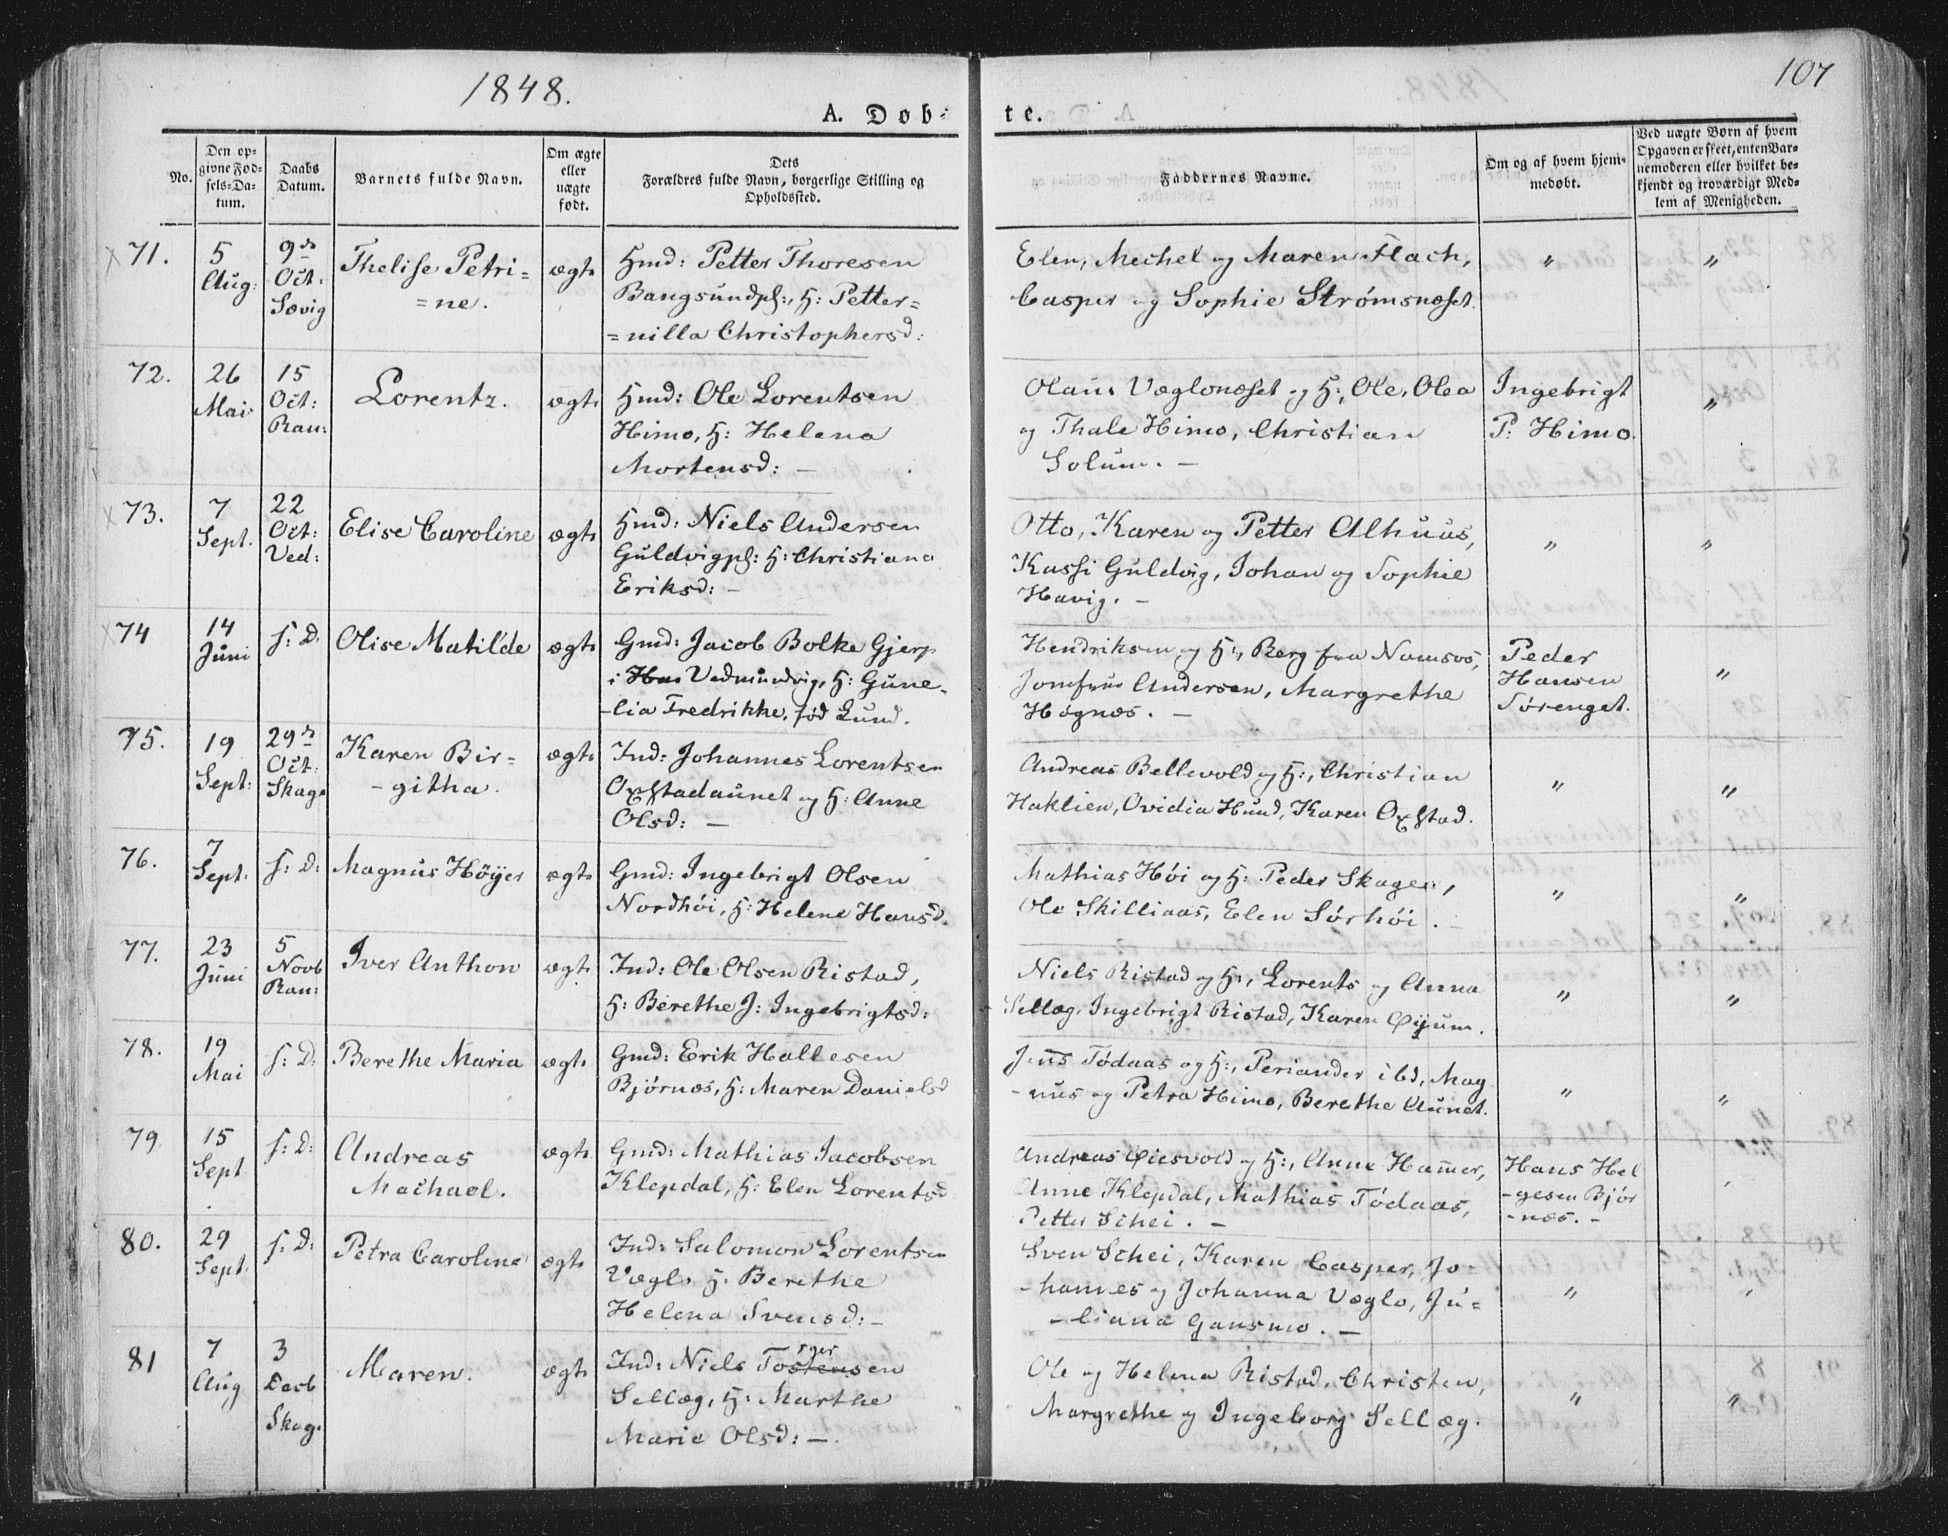 1848.
107
A. Døb-
te.
No.
Den opgivne Fødsels-Datum.
Daabs Datum.
Barnets fulde Navn.
Om ægte eller uægte født.
Dets Forældres fulde Navn, borgerlige Stilling og Opholdssted.
Faddernes Navne.
Om og af hvem hjemmedøbt.
Ved uægte Børn af hvem Opgaven er skeet, enten Barnemoderen eller hvilket bekjendt og troværdigt Medlem af Menigheden.
71.
5 Aug:
9de Oct: Sævig
Thelise Petri=
=ne.
ægte
Hmd: Petter Thoresen
Bangsundpl:, H: Petter=
=nilla Christophersd:
Elen, Mechel og Maren Flach,
Casper og Sophie Strømsnæset.
"
"
72.
26 Mai
15 Oct: Ran:
Lorentz.
ægte
Hmd: Ole Lorentsen
Himo, H: Helena
Mortensd: —
Olaus Væglonæset og H:, Ole, Olea
og Thale Himo, Christian
Solum. —
Ingebrigt
P: Himo.
"
73.
7 Sept.
22 Oct: Ved:
Elise Caroline
ægte
Hmd: Niels Andersen
Guldvigpl: H: Christiana
Eriksd: —
Otto, Karen og Petter Alhuus,
Kassi Guldvig, Johan og Sophie
Havig. —
"
"
74
14 Juni
s: D:
Olise Matilde
ægte
Gmd: Jacob Bolke Gjerp
i Vedmundvig, H: Gune-
-lia Fredrikke, fød Lund.
Hendriksen og H:, Berg fra Namsos,
Jomfrue Andersen, Margrethe
Høgnæs. —
Peder
Hansen
Sørenget.
"
75.
19 Sept:
29de Oct: Skage
Karen Bir=
-githa.
ægte
Ind: Johannes Lorentsen
Oxstadaunet og H: Anne
Olsd: —
Andreas Bellevold og H:, Christian
Haklien, Ovidia Hund, Karen Oxstad.
"
"
76.
7 Sept.
s: D:
Magnus Høyer
ægte
Gmd: Ingebrigt Olsen
Nordhøi, H: Helene Hansd.
Mathias Høi og H: Peder Skage,
Ole Skilliaas, Elen Sørhøi.
"
"
77.
23 Juni
5 Novb Ran:
Iver Anthon
ægte
Ind: Ole Olsen Ristad,
H: Berethe J: Ingebrigtsd:
Niels Ristad og H:, Lorents og Anna
Sellæg, Ingebrigt Ristad, Karen Øyum.
"
"
78.
19 Mai
s: D:
Berethe Maria
ægte
Gmd: Erik Hallesen
Bjørnæs, H: Maren Danielsd
Jens Tødaas og H:, Periander ibd, Mag
-nus og Petra Himo, Berethe Aunet.
"
"
79.
15 Sept
s: D:
Andreas
Machael.
ægte
Gmd: Mathias Jacobsen
Klepdal, H: Elen Lorentsd
Andreas Øiesvold og H:, Anne Hamer,
Anne Klepdal, Mathias Tødaas,
Petter Schei. —
Hans Hel
-gesen Bjør
-næs. —
"
80.
29 Sept.
s: D:
Petra Caroline
ægte
Ind: Salomon Lorentsen
Vægl, H: Berethe
Helena Svensd: —
Sven Schei, Karen Casper, Jo-
-hannes og Johanna Væglo, Ju=
-liana Gansmo. —
"
"
81
7 Aug
3 Decb Skage
Maren.
ægte
Ind: Niels Tostensen
Sellæg, H: Marthe
Marie Olsd: —
Ole og Helena Ristad, Christen,
Margrethe og Ingeborg Sellæg.
"
"